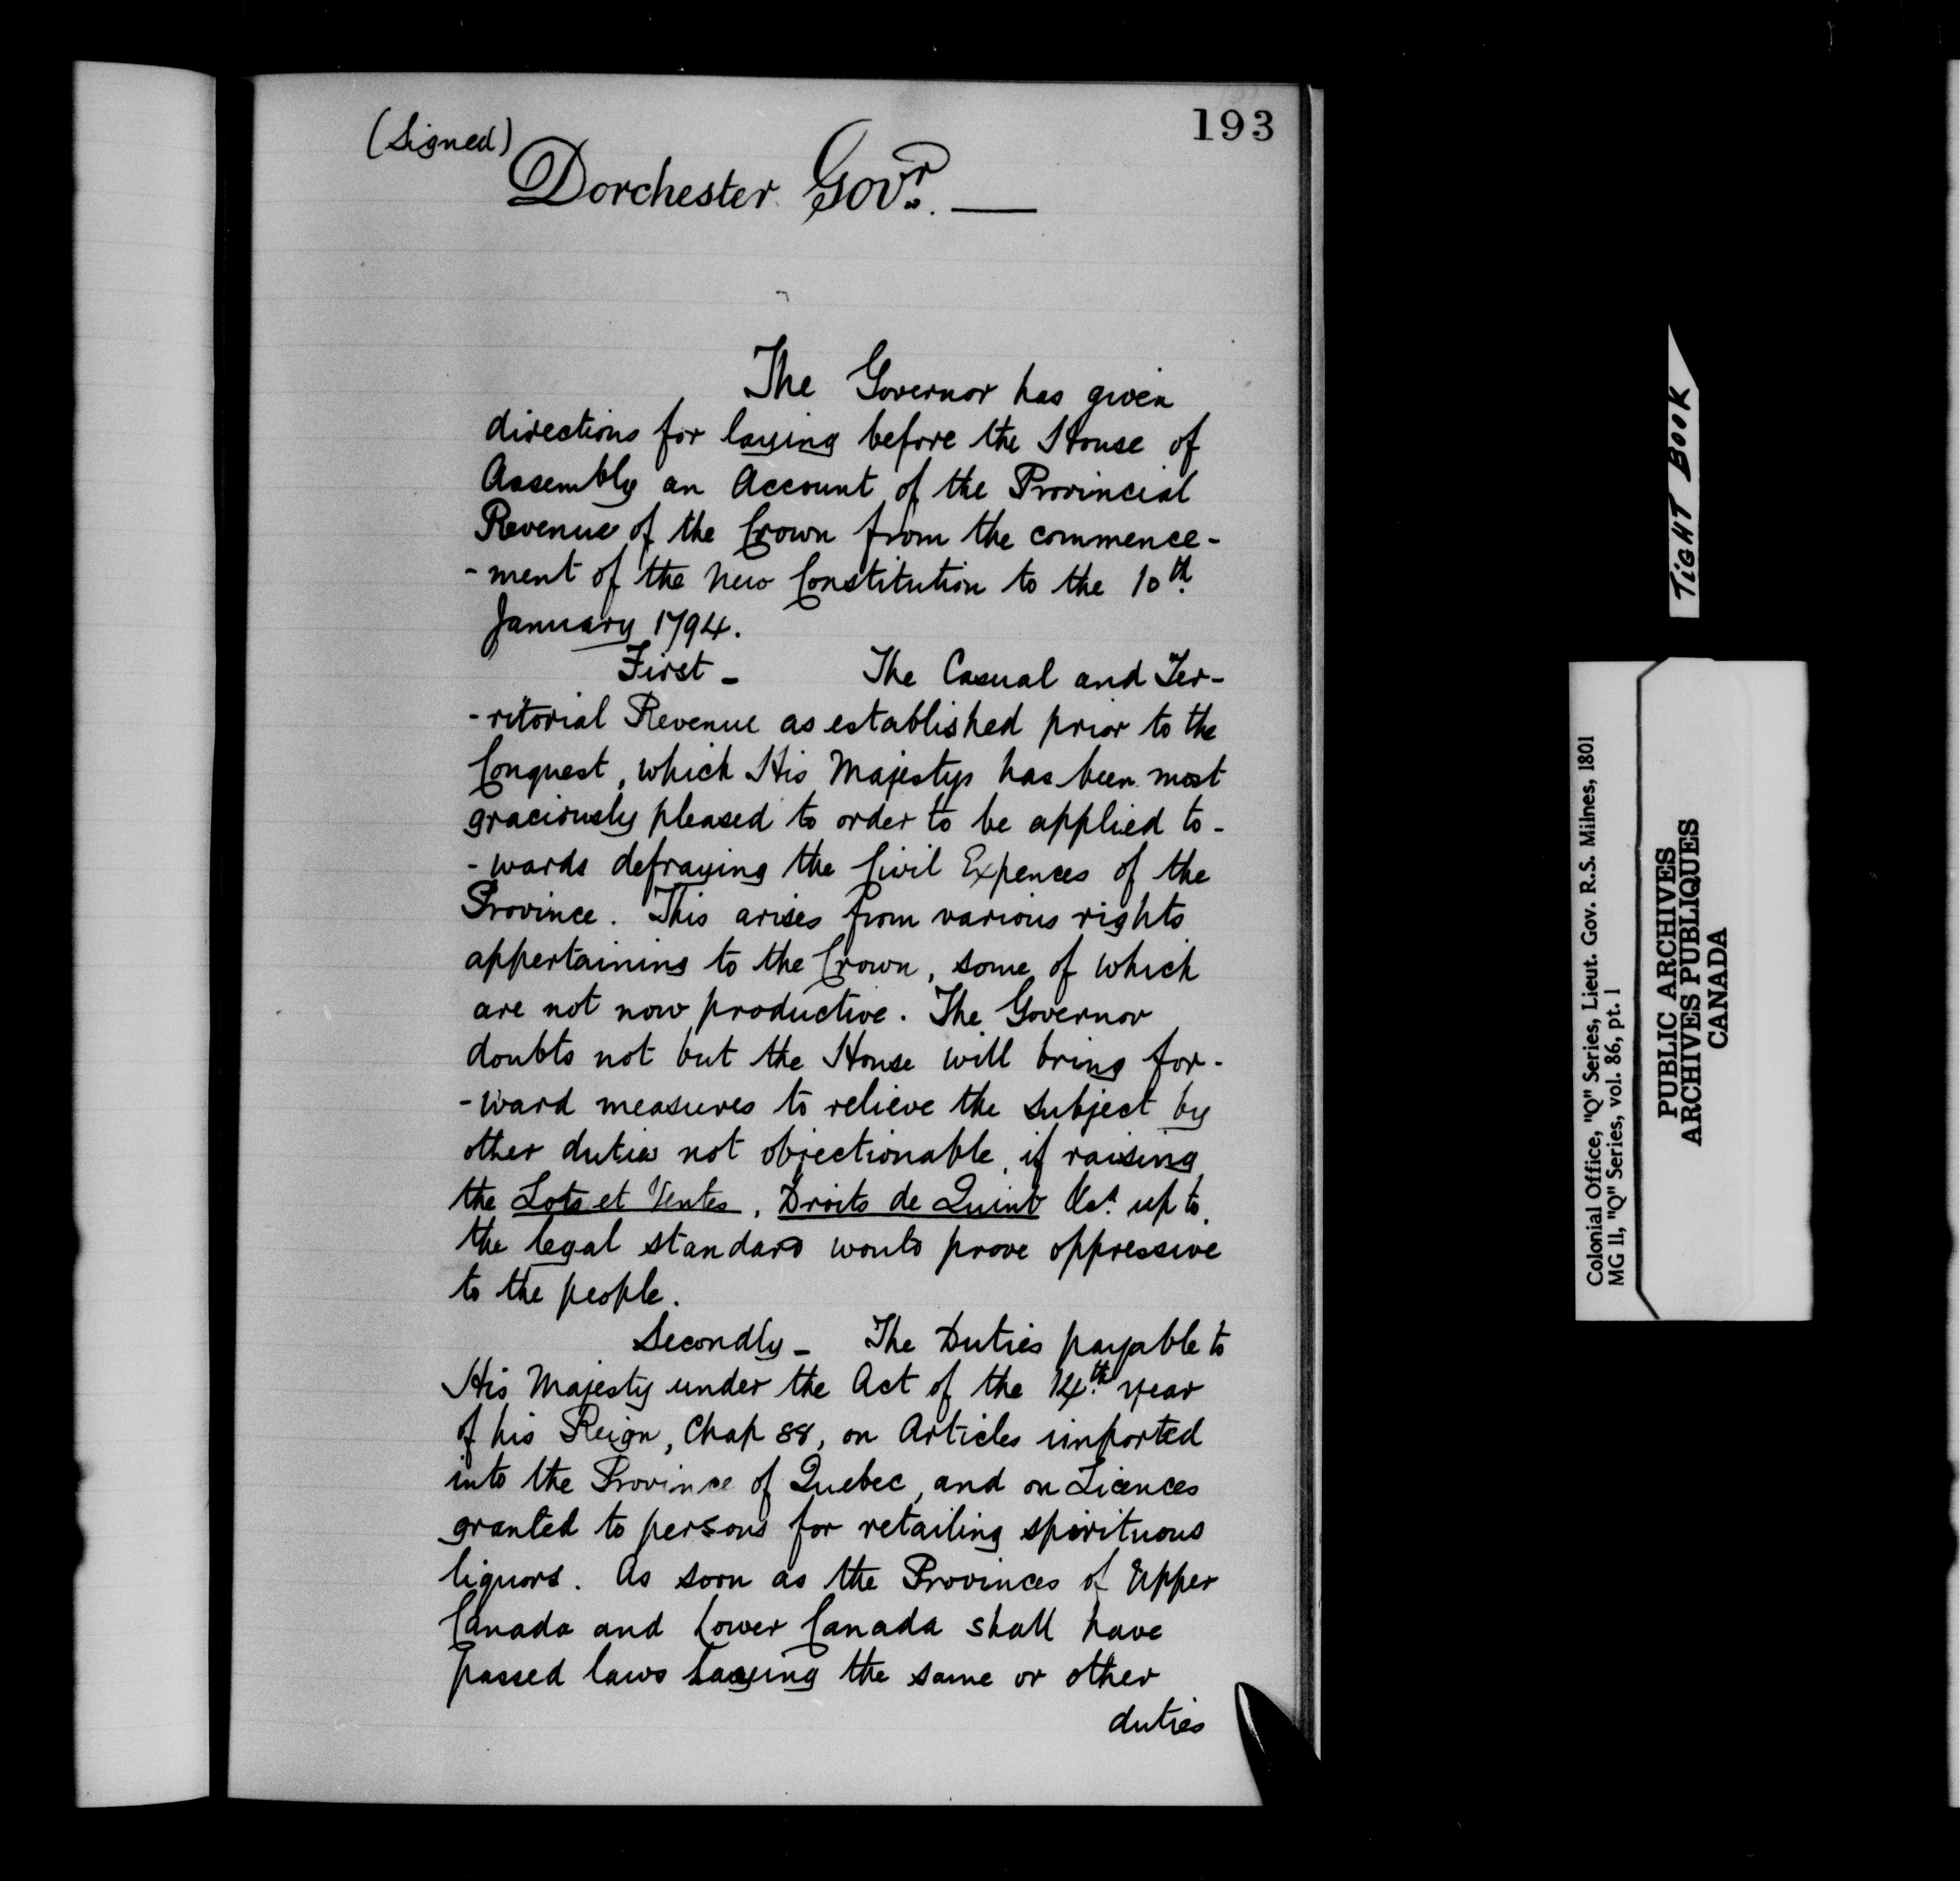 193
(Signed)
Dorchester Gov.r —
The Governor has given
directions for laying before the House of
Assembly an Account of the Provincial
Revenue of the Crown from the commence-
-ment of the New Constitution to the 10th
January 1794.
First - The Casual and Ter-
-ritorial Revenue as established prior to the
Conquest, which His Majesty has been most
graciously pleased to order to be applied to-
-wards defraying the Civil Expences of the
Province. This arises from various rights
appertaining to the Crown, some of which
are not now productive. The Governor
doubts not but the House will bring for-
-ward measures to relieve the Subject by
other duties not objectionable, if raising
the Lots et Ventes, Droits de Quint &ca. up to
the legal standard would prove oppressive
to the people.
Secondly - The Duties payable to
His Majesty under the Act of the 14.th year
of his Reign, Chap 88, on Articles imported
into the Province of Quebec, and on Licences
granted to persons for retailing spirituous
liquors. As soon as the Provinces of Upper
Canada and Lower Canada shall have
passed laws laying the same or other
duties
TIGHT BOOK
Colonial Office, "Q" Series, Lieut. Gov. R.S. Milnes, 1801
MG 11, "Q" Series, vol. 86, pt. 1
PUBLIC ARCHIVES
ARCHIVES PUBLIQUES
CANADA